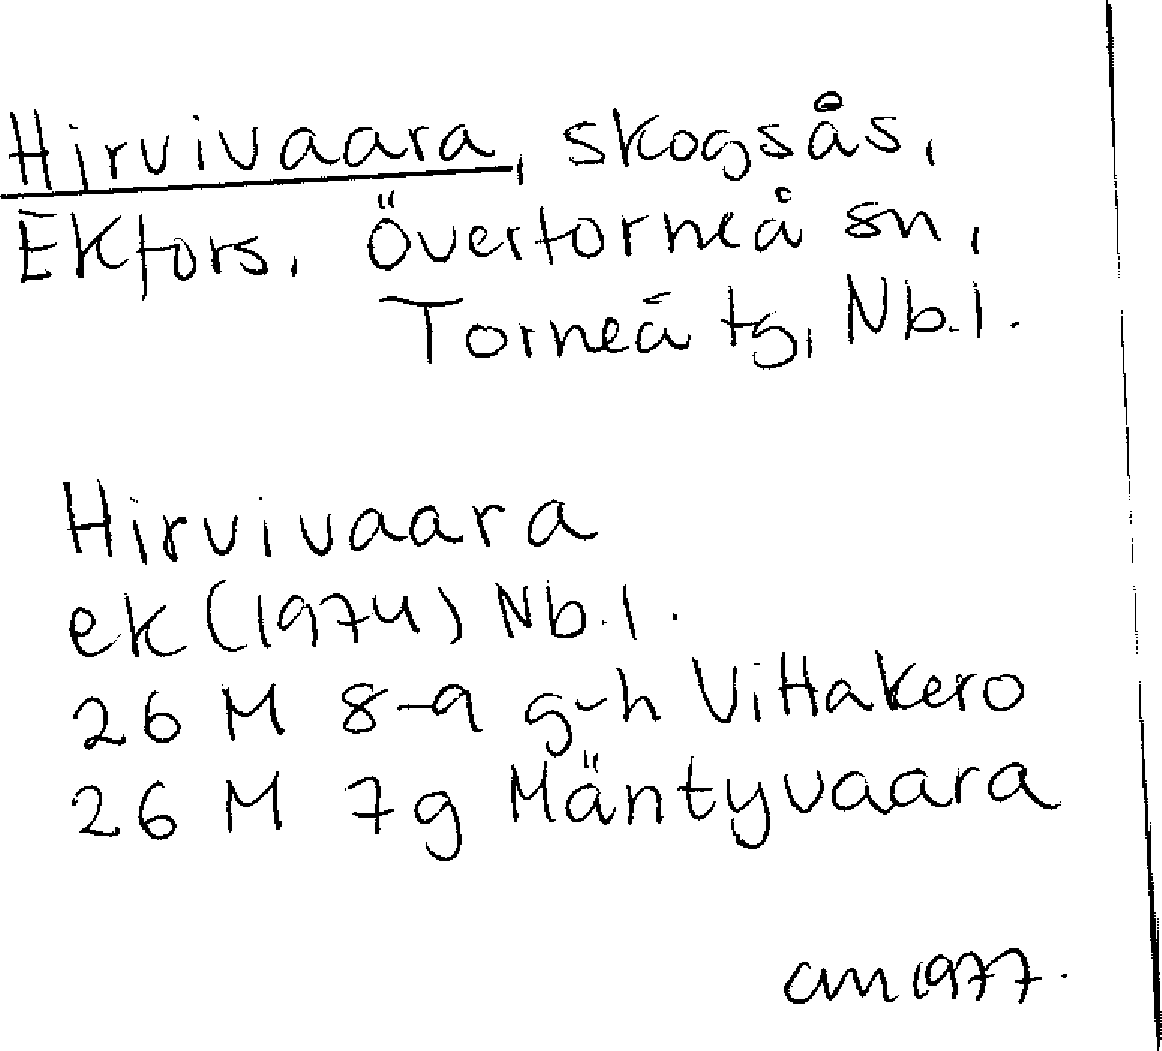 Hirvivaara, skogsås,
Ekfors. Övertorneå sn,
Torneå tg, Nb.l.
Hirvivaara
ek (1974) Nb.l.
26 M 8-9 g-h Vittakero
26 M 7g Mäntyvaara
CM 1977.